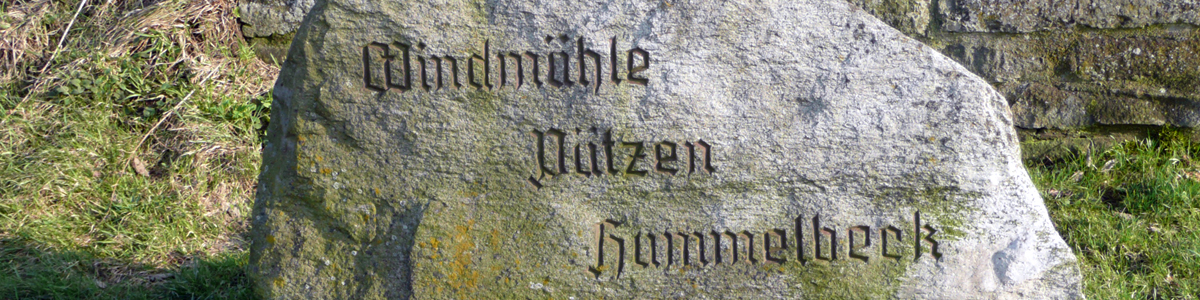 Windmühle
Dützen
Hummelbeck